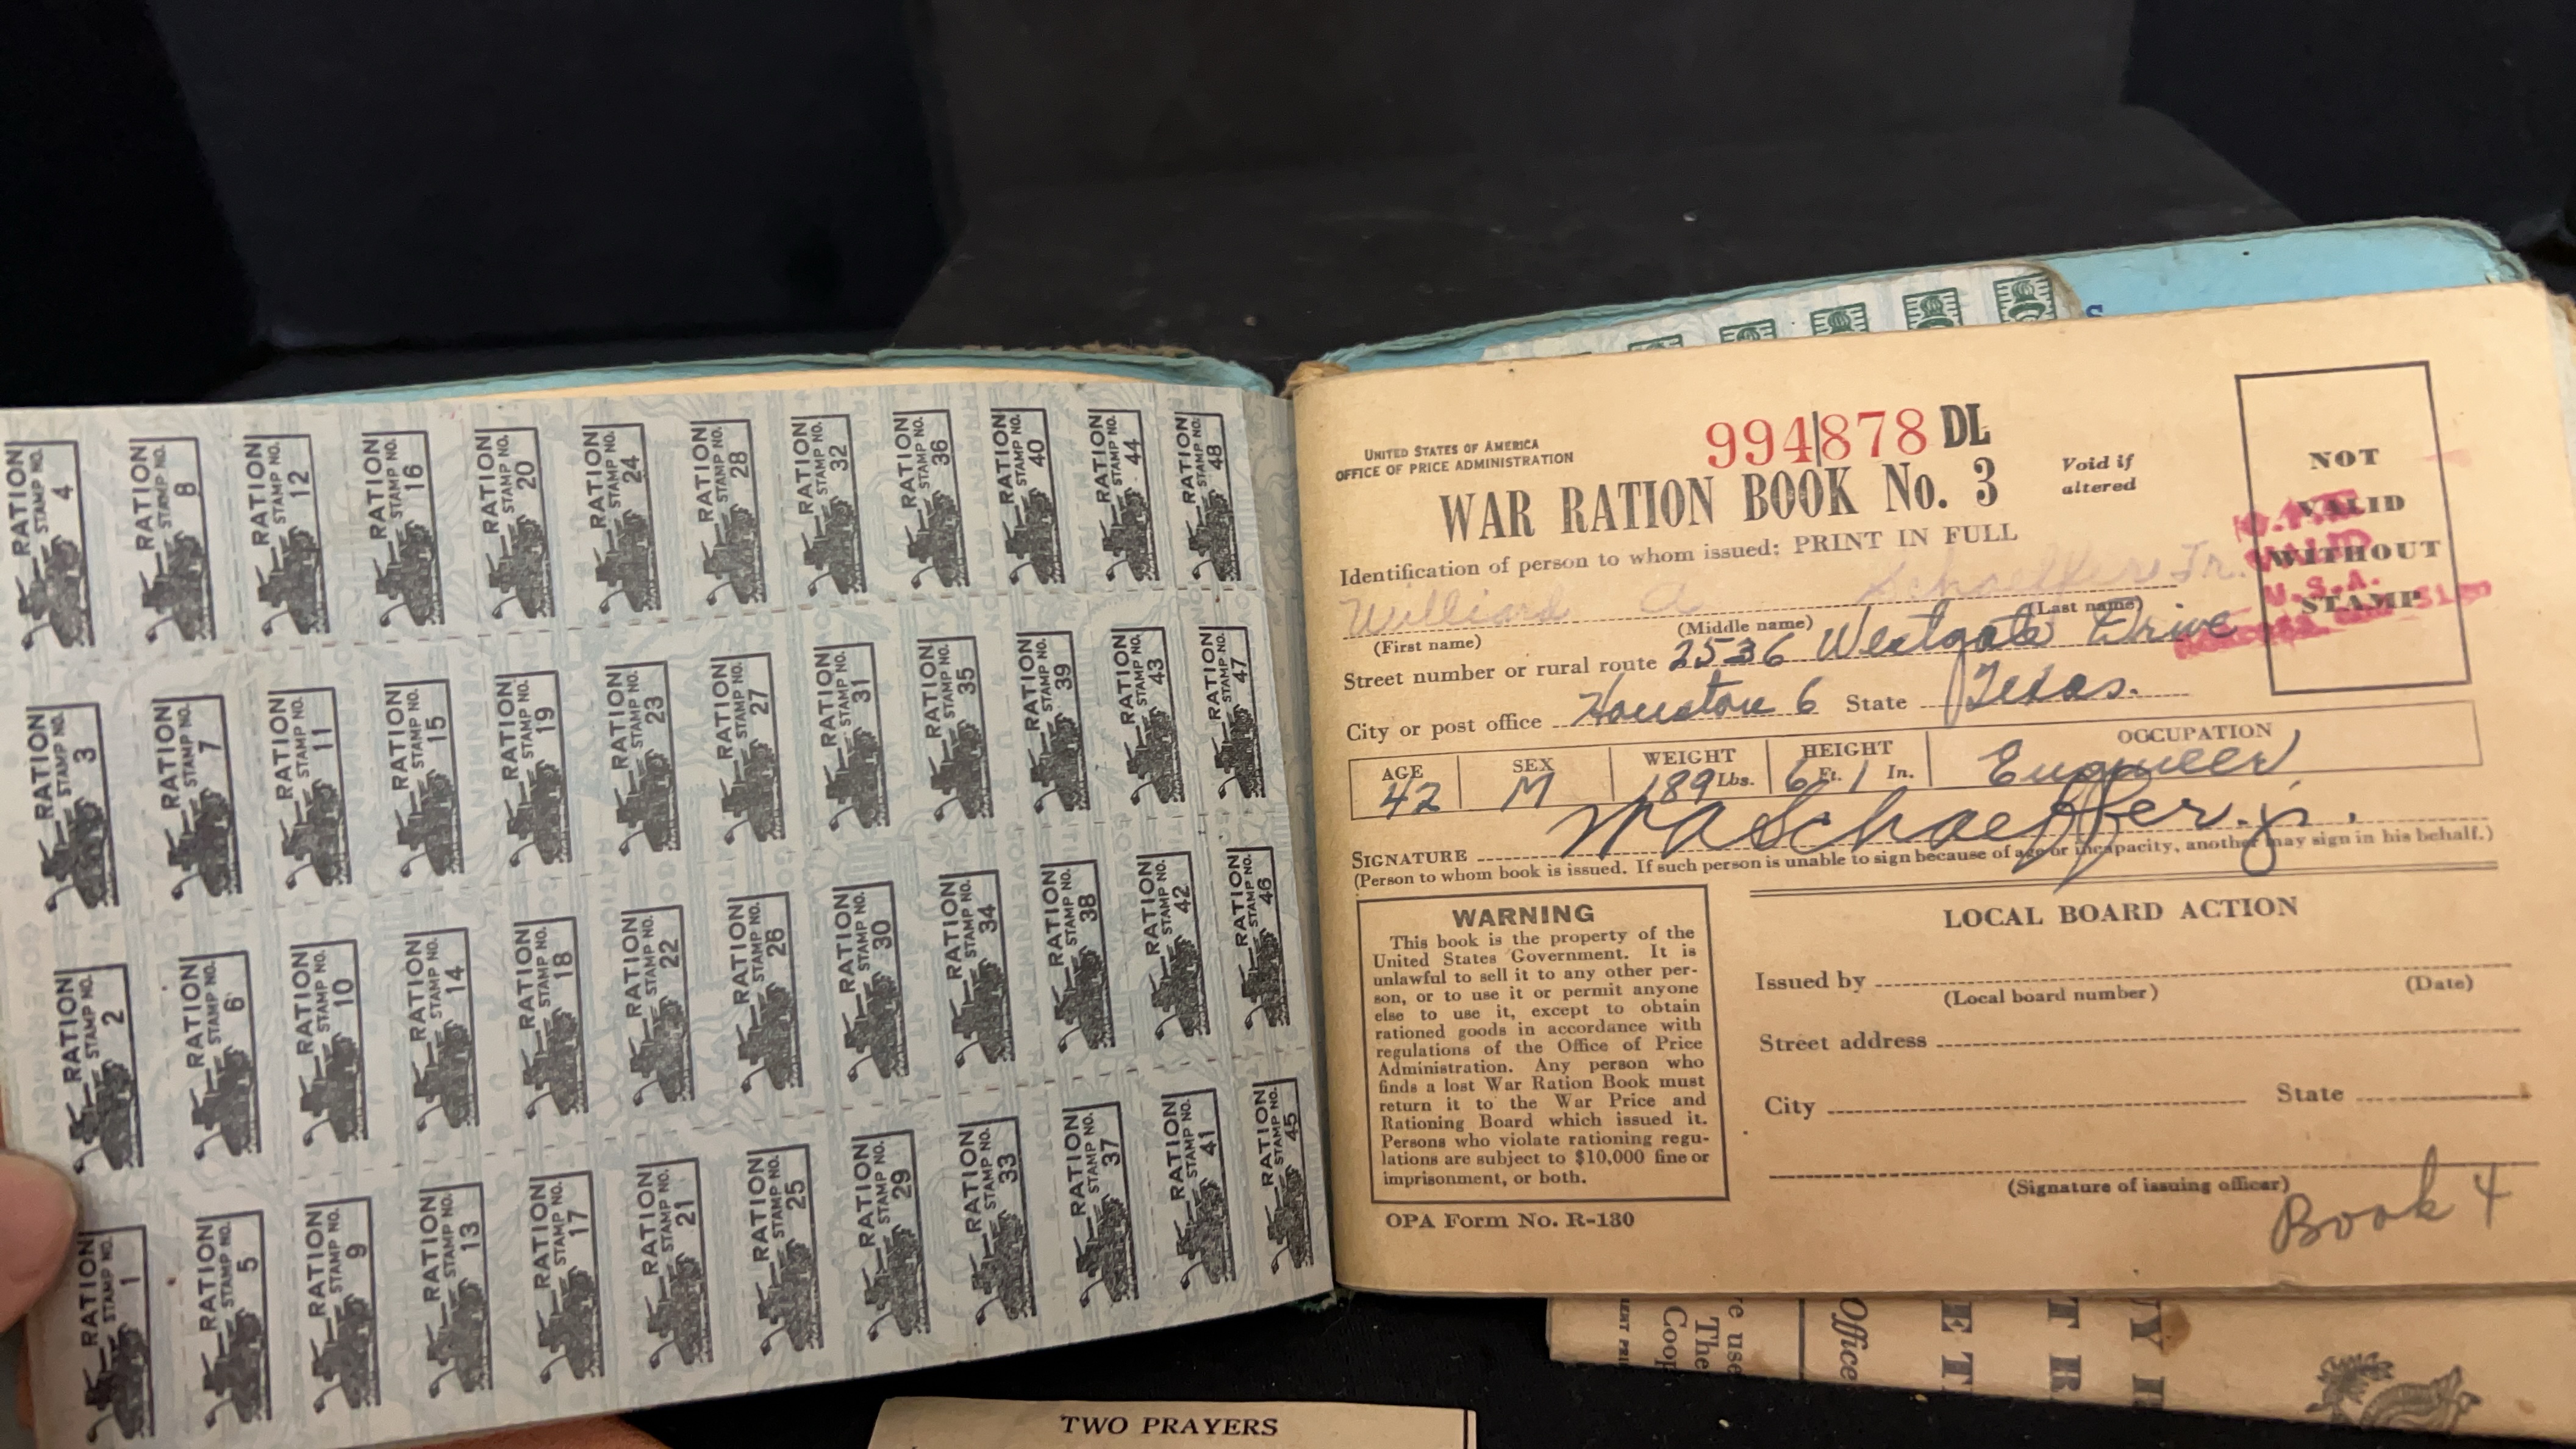 RATION
STAMP NO.
1
RATION
STAMP NO.
2
RATION
STAMP NO.
3
RATION
STAMP NO.
4
RATION
STAMP NO.
5
RATION
STAMP NO.
6
RATION
STAMP NO.
7
RATION
STAMP NO.
8
RATION
STAMP NO.
9
RATION
STAMP NO.
10
RATION
STAMP NO.
11
RATION
STAMP NO.
12
RATION
STAMP NO.
13
RATION
STAMP NO.
14
RATION
STAMP NO.
15
RATION
STAMP NO.
16
RATION
STAMP NO.
17
RATION
STAMP NO.
18
RATION
STAMP NO.
19
RATION
STAMP NO.
20
RATION
STAMP NO.
21
RATION
STAMP NO.
22
RATION
STAMP NO.
23
RATION
STAMP NO.
24
RATION
STAMP NO.
25
RATION
STAMP NO.
26
RATION
STAMP NO.
27
RATION
STAMP NO.
28
RATION
STAMP NO.
29
RATION
STAMP NO.
30
RATION
STAMP NO.
31
RATION
STAMP NO.
32
RATION
STAMP NO.
33
RATION
STAMP NO.
34
RATION
STAMP NO.
35
RATION
STAMP NO.
36
RATION
STAMP NO.
37
RATION
STAMP NO.
38
RATION
STAMP NO.
39
RATION
STAMP NO.
40
RATION
STAMP NO.
41
RATION
STAMP NO.
42
RATION
STAMP NO.
43
RATION
STAMP NO.
44
RATION
STAMP NO.
45
RATION
STAMP NO.
46
RATION
STAMP NO.
47
RATION
STAMP NO.
48
UNITED STATES OF AMERICA
OFFICE OF PRICE ADMINISTRATION
994878 DL
WAR RATION BOOK No. 3
Void if
altered
NOT
VALID
WITHOUT
STAMP
VALID
U.S.A.
Identification of person to whom issued: PRINT IN FULL
Williard A Schaeffer Jr.
(First name) (Middle name) (Last name)
Street number or rural route 2536 Westgate Drive
City or post office Houston 6 State Texas.
AGE SEX WEIGHT HEIGHT OCCUPATION
42 M 189 Lbs. 6 Ft. 1 In. Engineer
SIGNATURE W A Schaeffer. Jr.
(Person to whom book is issued. If such person is unable to sign because of age or incapacity, another may sign in his behalf.)
WARNING
This book is the property of the
United States Government. It is
unlawful to sell it to any other per-
son, or to use it or permit anyone
else to use it, except to obtain
rationed goods in accordance with
regulations of the Office of Price
Administration. Any person who
finds a lost War Ration Book must
return it to the War Price and
Rationing Board which issued it.
Persons who violate rationing regu-
lations are subject to $10,000 fine or
imprisonment, or both.
OPA Form No. R-130
LOCAL BOARD ACTION
Issued by
(Local board number) (Date)
Street address
City State
(Signature of issuing officer)
Book 4
re use
The
Coop
Office
TWO PRAYERS